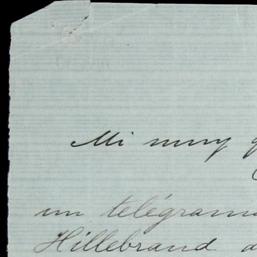 Mi muy
un telégrama
Hillebrand